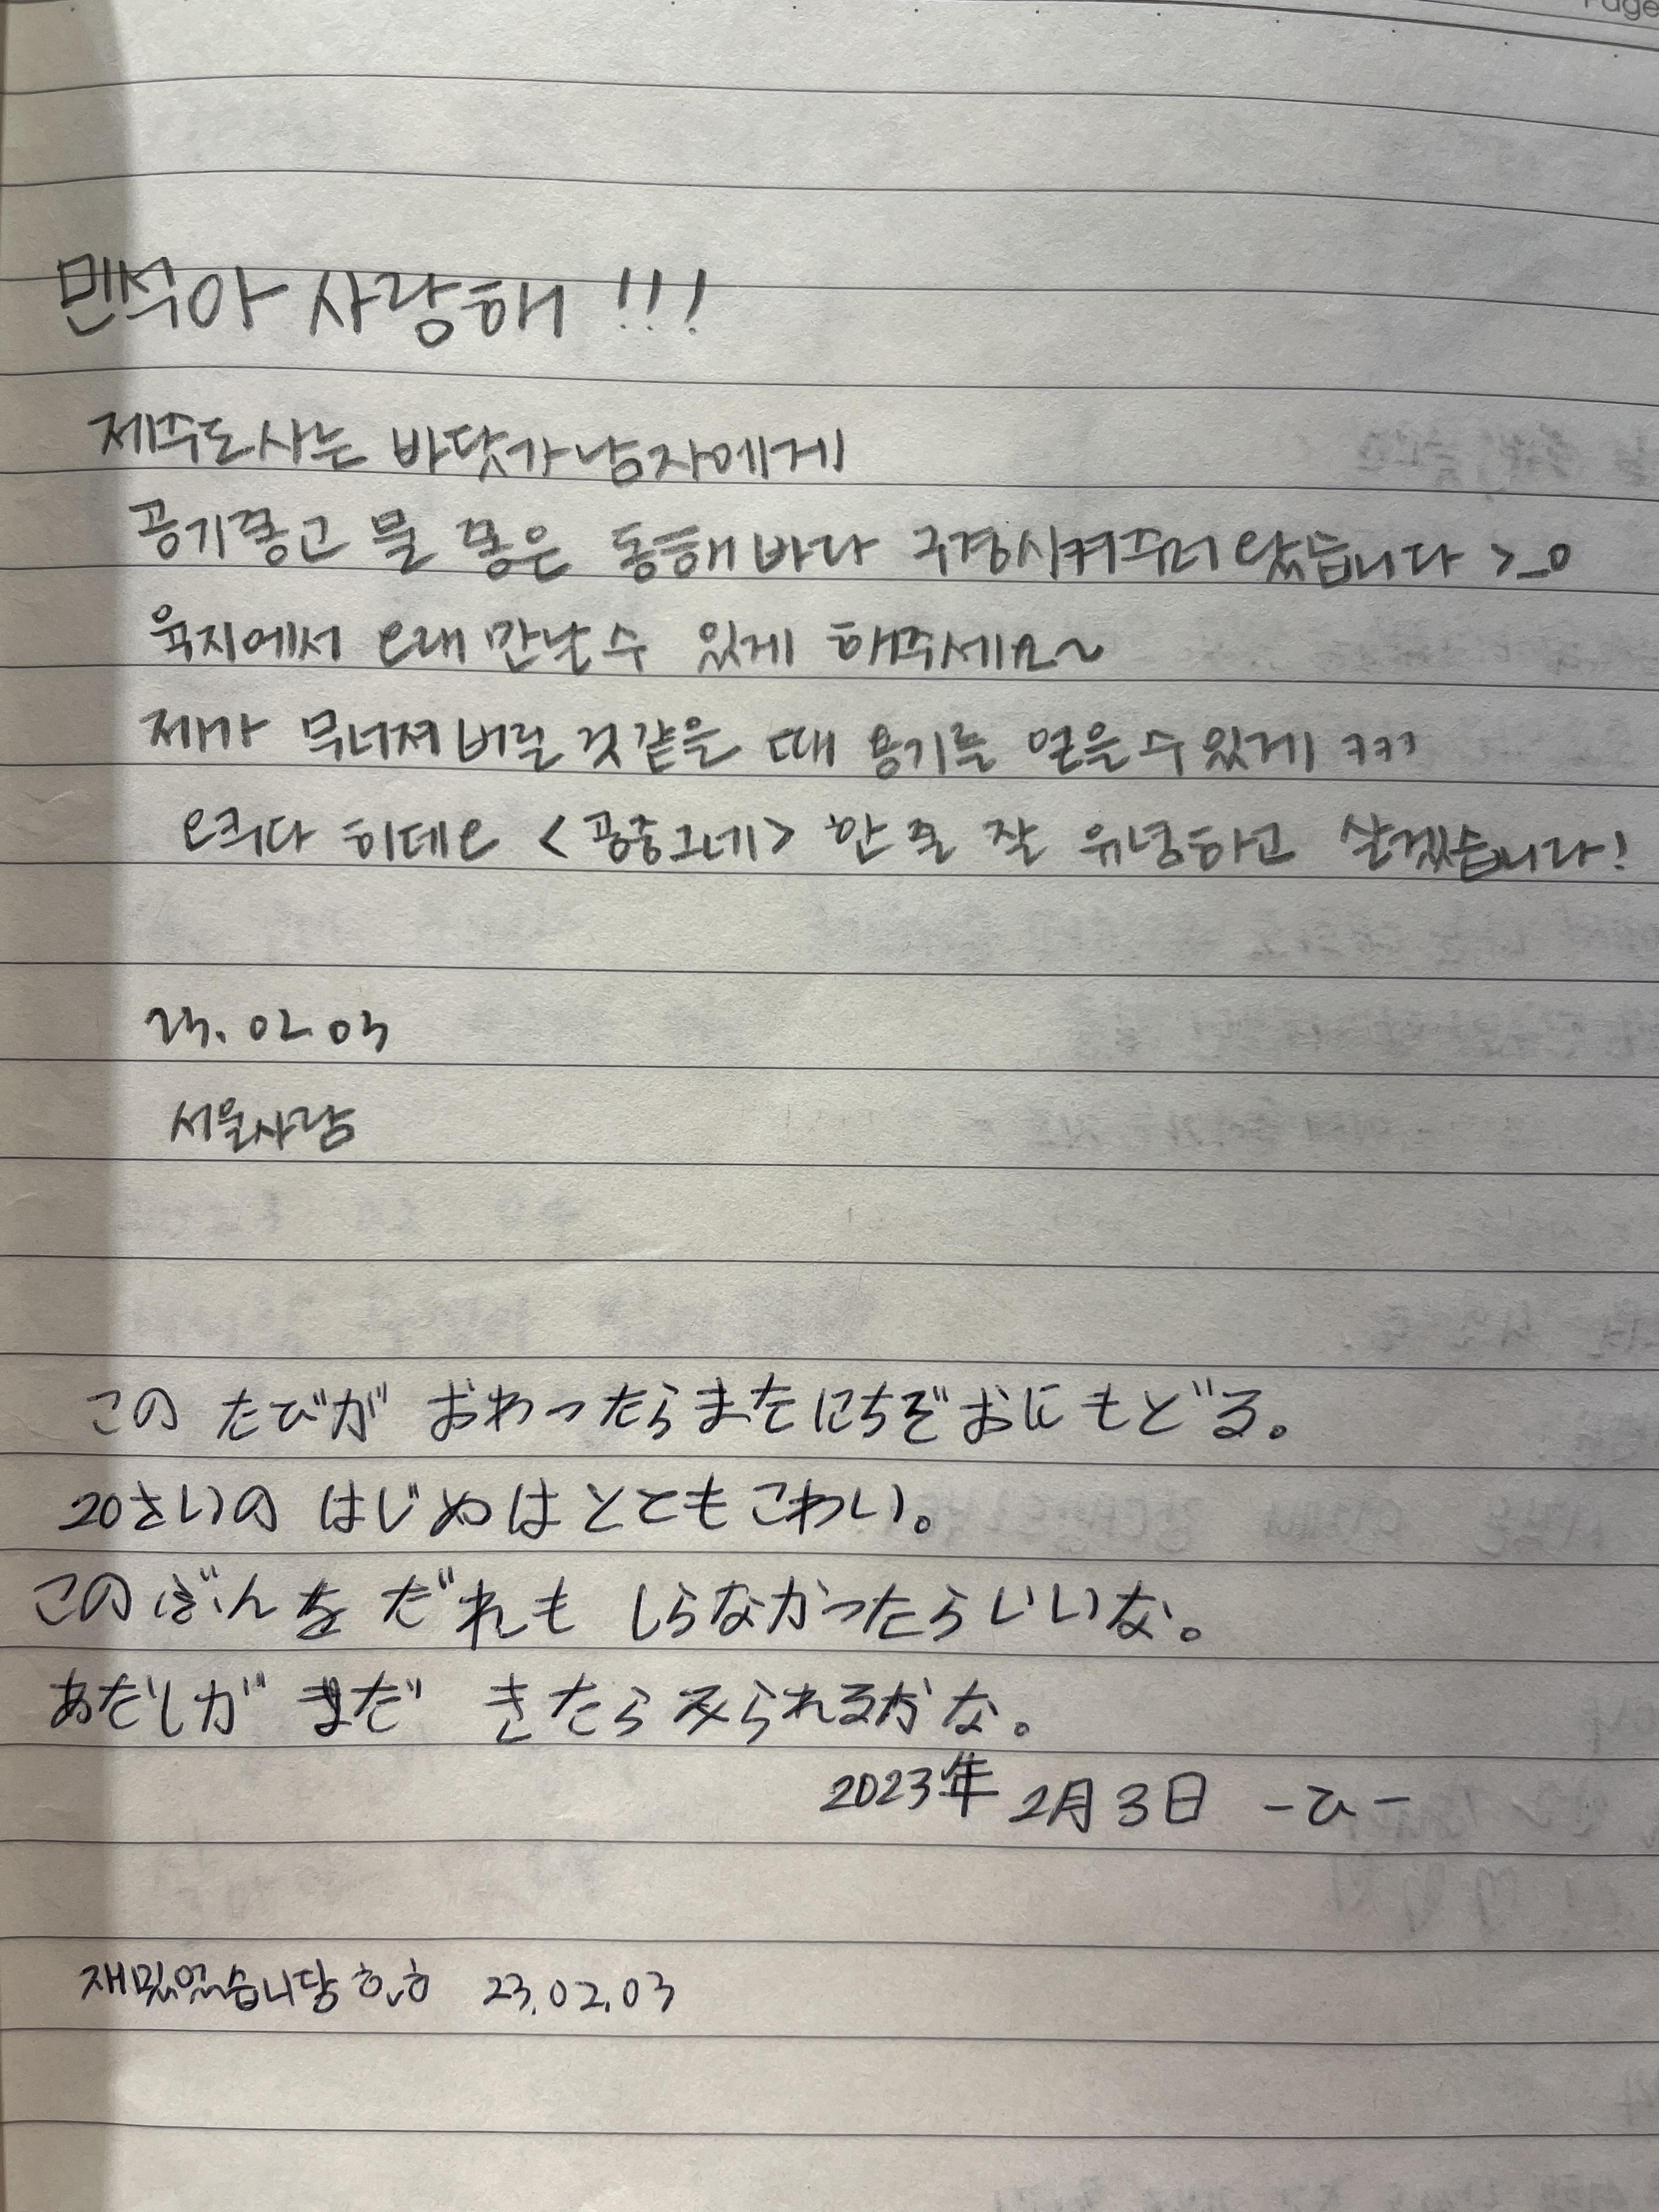 Page
민석아 사랑해 !!!
제주도사는 바닷가남자에게
공기좋고 물 좋은 동해바다 구경시켜주러 왔습니다 >_0
육지에서 오래 만날 수 있게 해주세요~
제가 무너져버릴 것같을 때 용기를 얻을 수 있게 ㅋㅋㅋ
오쿠다 히데오 <공중그네> 한 줄 잘 유념하고 살겠습니다!
23. 02 03
서울사람
この たびが おわったらまたにちぞおにもどる。
20さいの はじめはとてもこわい。
このぶんを だれも しらなかったらいいな。
あだしが まだ きたらみられるかな。
2023年 2月3日 -ひ-
재밌었습니당 ㅎ.ㅎ 23.02.03